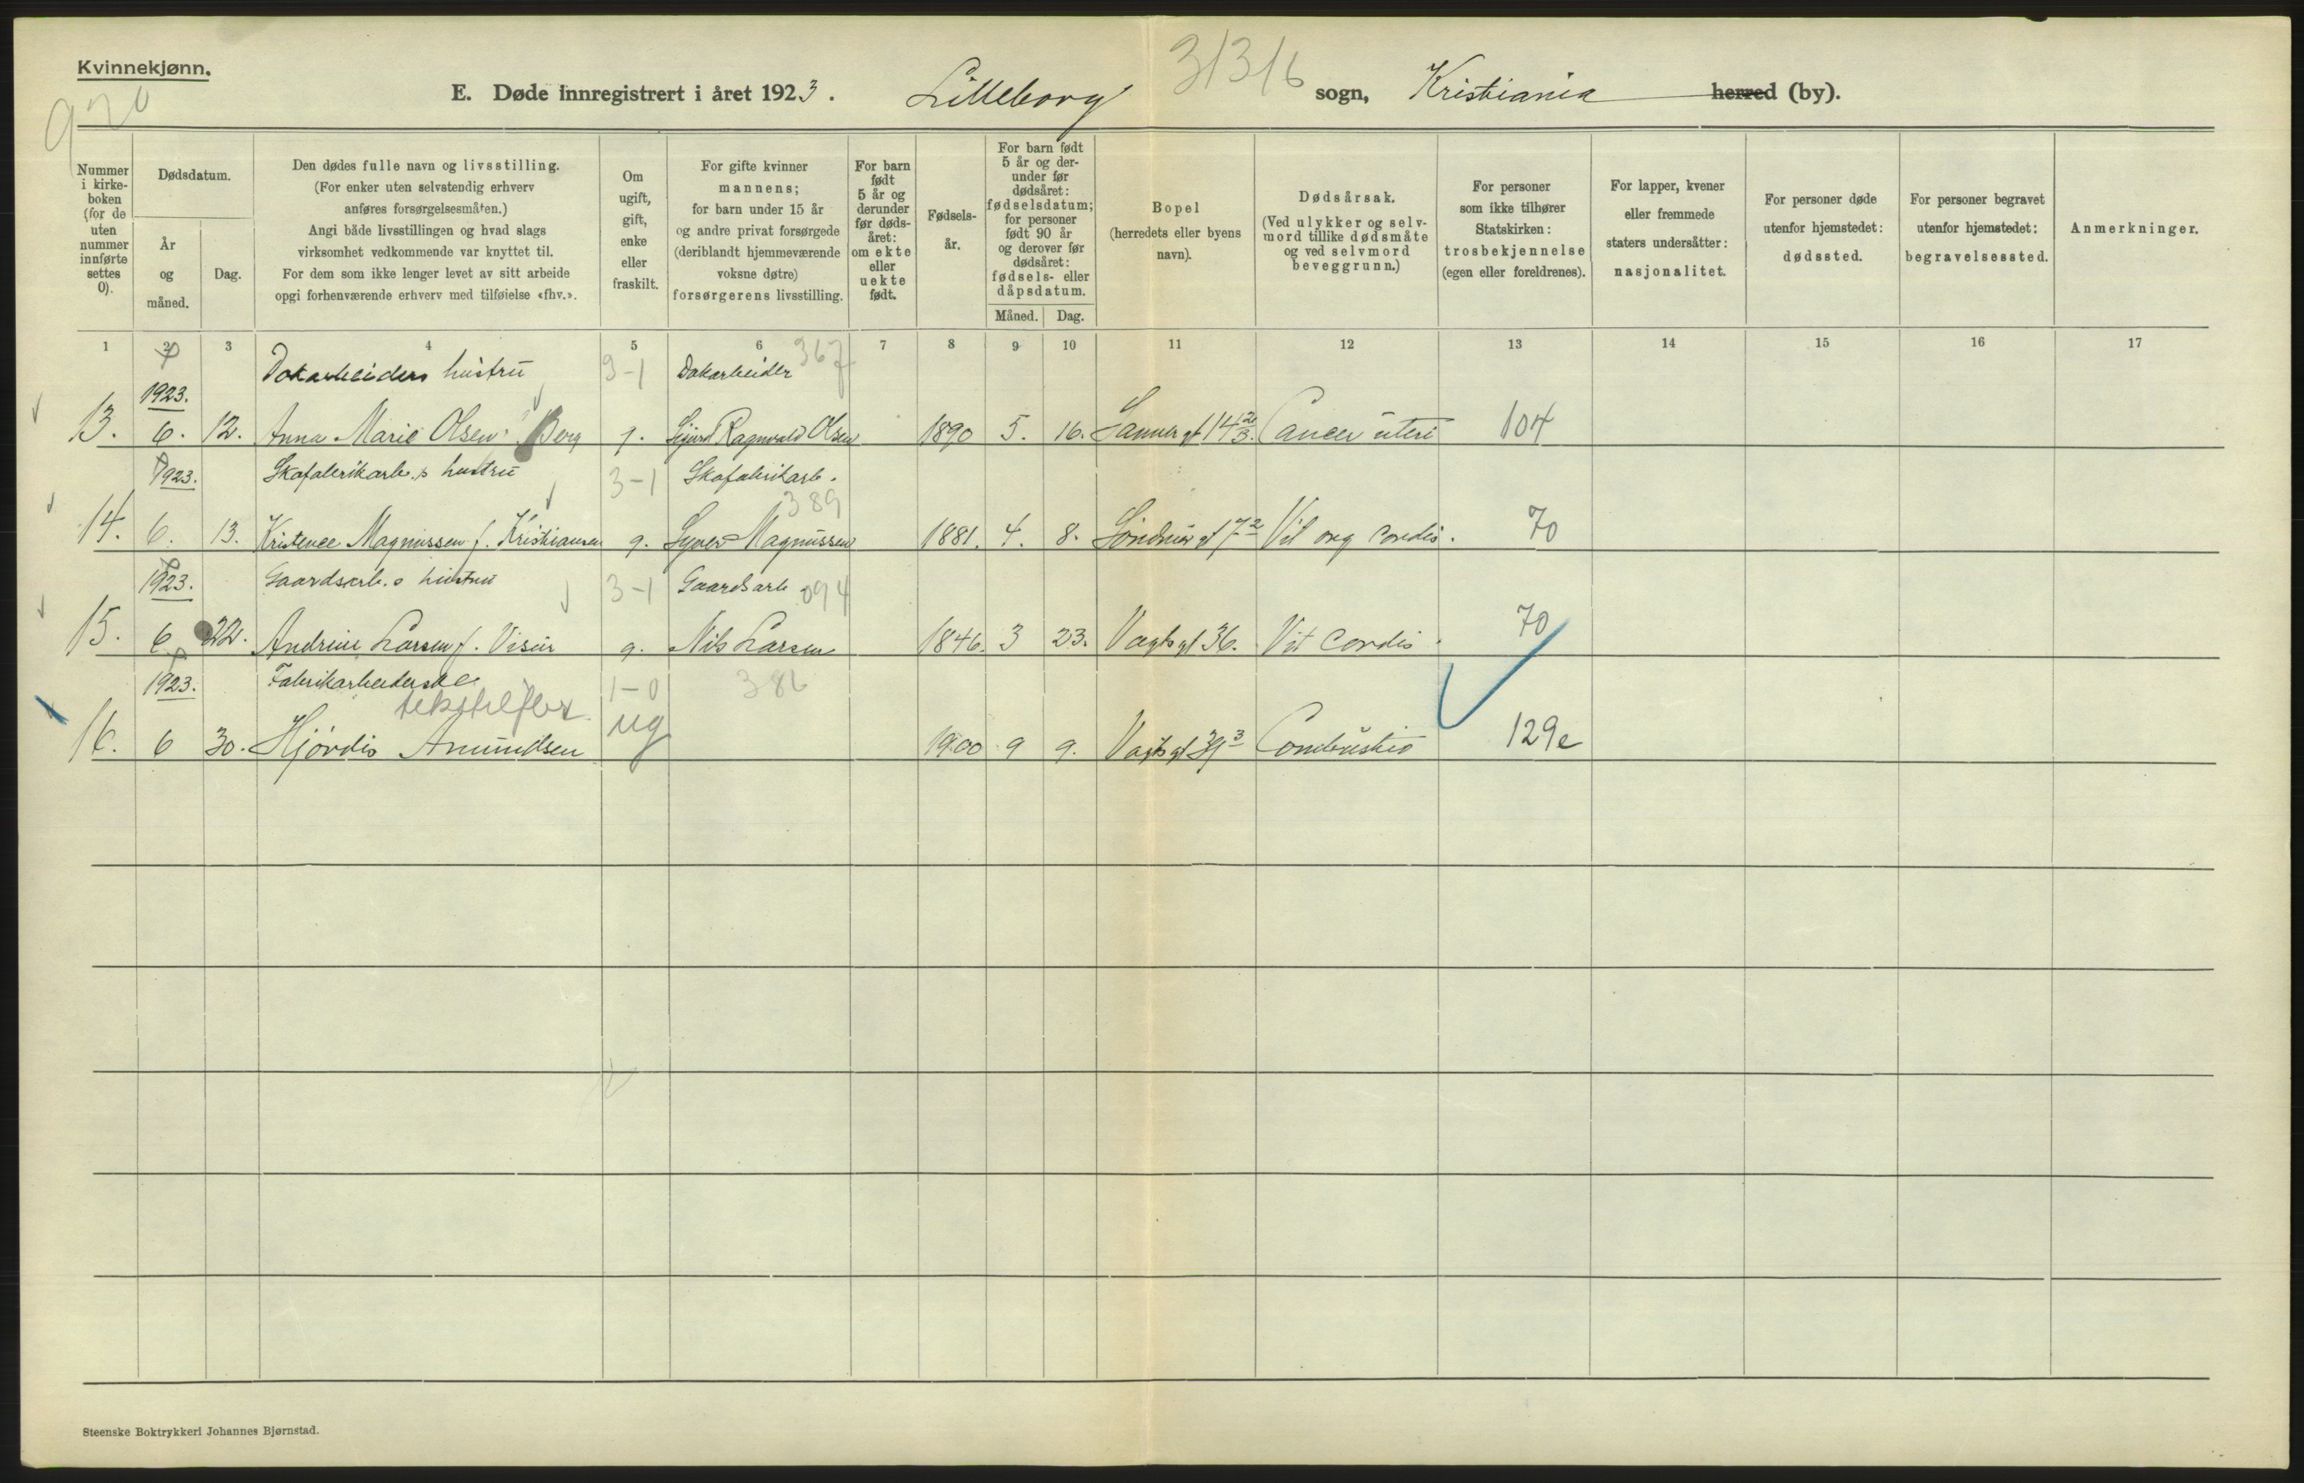 Kvinnekjønn.
920
E. Døde innregistrert i året 1923. Lilleborg 31316 sogn, Kristiania herred (by).
Nummer i kirke-boken (for de uten nummer innførte settes 0).
Dødsdatum.
År og måned.
Dag.
Den dødes fulle navn og livsstilling.
(For enker uten selvstendig erhverv
anføres forsørgelsesmåten.)
Angi både livsstillingen og hvad slags
virksomhet vedkommende var knyttet til.
For dem som ikke lenger levet av sitt arbeide
opgi forhenværende erhverv med tilføielse «fhv.».
Om ugift, gift, enke eller fraskilt.
For gifte kvinner
mannens;
for barn under 15 år
og andre privat forsørgede
(deriblandt hjemmeværende
voksne døtre)
forsørgerens livsstilling.
For barn født 5 år og derunder før døds-året: om ekte eller uekte født.
Fødsels-år.
For barn født 5 år og der-under før dødsåret: fødselsdatum; for personer født 90 år og derover før dødsåret: fødsels- eller dåpsdatum.
Måned. Dag.
Bopel
(herredets eller byens
navn).
Dødsårsak.
(Ved ulykker og selv-
mord tillike dødsmåte
og ved selvmord
beveggrunn.)
For personer
som ikke tilhører
Statskirken:
trosbekjennelse
(egen eller foreldrenes).
For lapper, kvener
eller fremmede
staters undersåtter:
nasjonalitet.
For personer døde
utenfor hjemstedet:
dødssted.
For personer begravet
utenfor hjemstedet:
begravelsessted.
Anmerkninger.
1 2 3 4 5 6 7 8 9 10 11 12 13 14 15 16 17
Dokarbeiders hustru 3-1 Dokarbeider 367
1923.
13. 6. 12. Anna Marie Olsen Berg g. Sigurd Ragnvald Olsen 1890 5. 16. Sannergt 14 2/3. Cancer uteri 104
1923. Skofabrikarb.s hustru 3-1 Skofabrikarb. 389
14. 6. 13. Kristence Magnussen f. Kristiansen g. Syver Magnussen 1881. 4. 8. gt 7 2 Vit org cordis. 70
1923. Gaardsarb.s hustru 3-1 Gaardsarb 094
15. 6 22. Andrine Larsen f. g. Nils Larsen 1846. 3 23. Vogtsgt 36. Vit cordis. 70
1923. Fabrikarbeiderske 1-0 386
16. 6 30. Hjørdis Amundsen ug 1900 9 9. Vogtsgt 39 3 Combustio 129e
Steenske Boktrykkeri Johannes Bjørnstad.